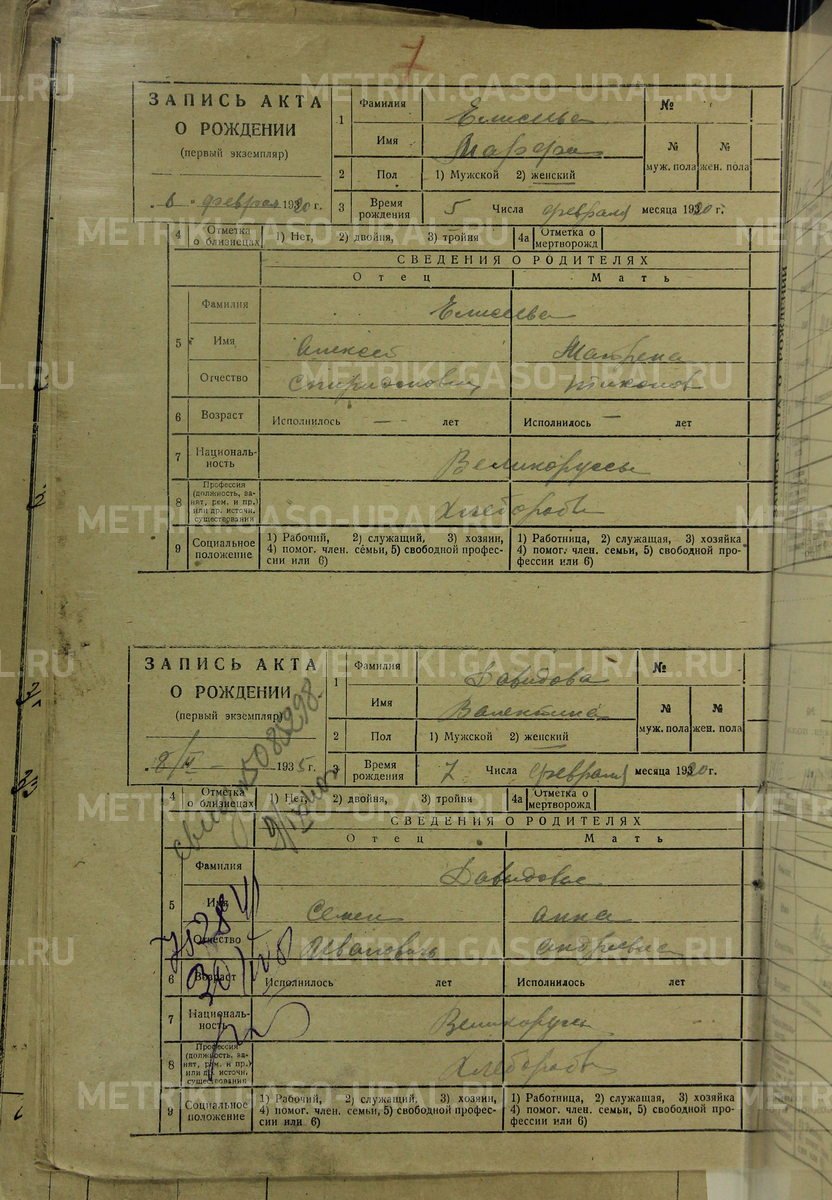 7
ЗАПИСЬ АКТА
О РОЖДЕНИИ
(первый экземпляр)
6 февраля 1920 г.
1 Фамилия Елисеева №
Имя
2 Пол 1) Мужской 2) женский
№ муж. пола № жен. пола
3 Время рождения 5 Числа февраля месяца 1920 г.
4 Отметка о близнецах 1) Нет, 2) двойня, 3) тройня 4а Отметка о мертворожд
СВЕДЕНИЯ О РОДИТЕЛЯХ
Отец Мать
5 Фамилия Елисеевы
Имя Алексей Матрена
Отчество Спиридонович Тихонов
6 Возраст Исполнилось — лет Исполнилось — лет
7 Националь-
ность Великоруссы
8 Профессия
(должность, за-
нят, рем. и пр.)
или др. источн.
существования Хлеборобы
9 Социальное положение 1) Рабочий, 2) служащий, 3) хозяин, 1) Работница, 2) служащая, 3) хозяйка
4) помог. член. семьи, 5) свободной профес- 4) помог. член. семьи, 5) свободной про-
сии или 6) фессии или 6)
ЗАПИСЬ АКТА
О РОЖДЕНИИ
(первый экземпляр)
8/II 1935 г.
1 Фамилия Давидова №
Имя Валентина
2 Пол 1) Мужской 2) женский
№ муж. пола № жен. пола
3 Время рождения 7 Числа февраля месяца 1920 г.
4 Отметка о близнецах 1) Нет, 2) двойня, 3) тройня 4а Отметка о мертворожд
СВЕДЕНИЯ О РОДИТЕЛЯХ
Отец Мать
5 Фамилия Давидовы
Имя Семен Анна
Отчество Иванович Андреевна
6 Возраст Исполнилось лет Исполнилось лет
7 Националь-
ность Великоруссы
8 Профессия
(должность, за-
нят, рем. и пр.)
или др. источн.
существования Хлеборобы
9 Социальное положение 1) Рабочий, 2) служащий, 3) хозяин, 1) Работница, 2) служащая, 3) хозяйка
4) помог. член. семьи, 5) свободной профес- 4) помог. член. семьи, 5) свободной про-
сии или 6) фессии или 6)
METRIKI.GASO-URAL.RU